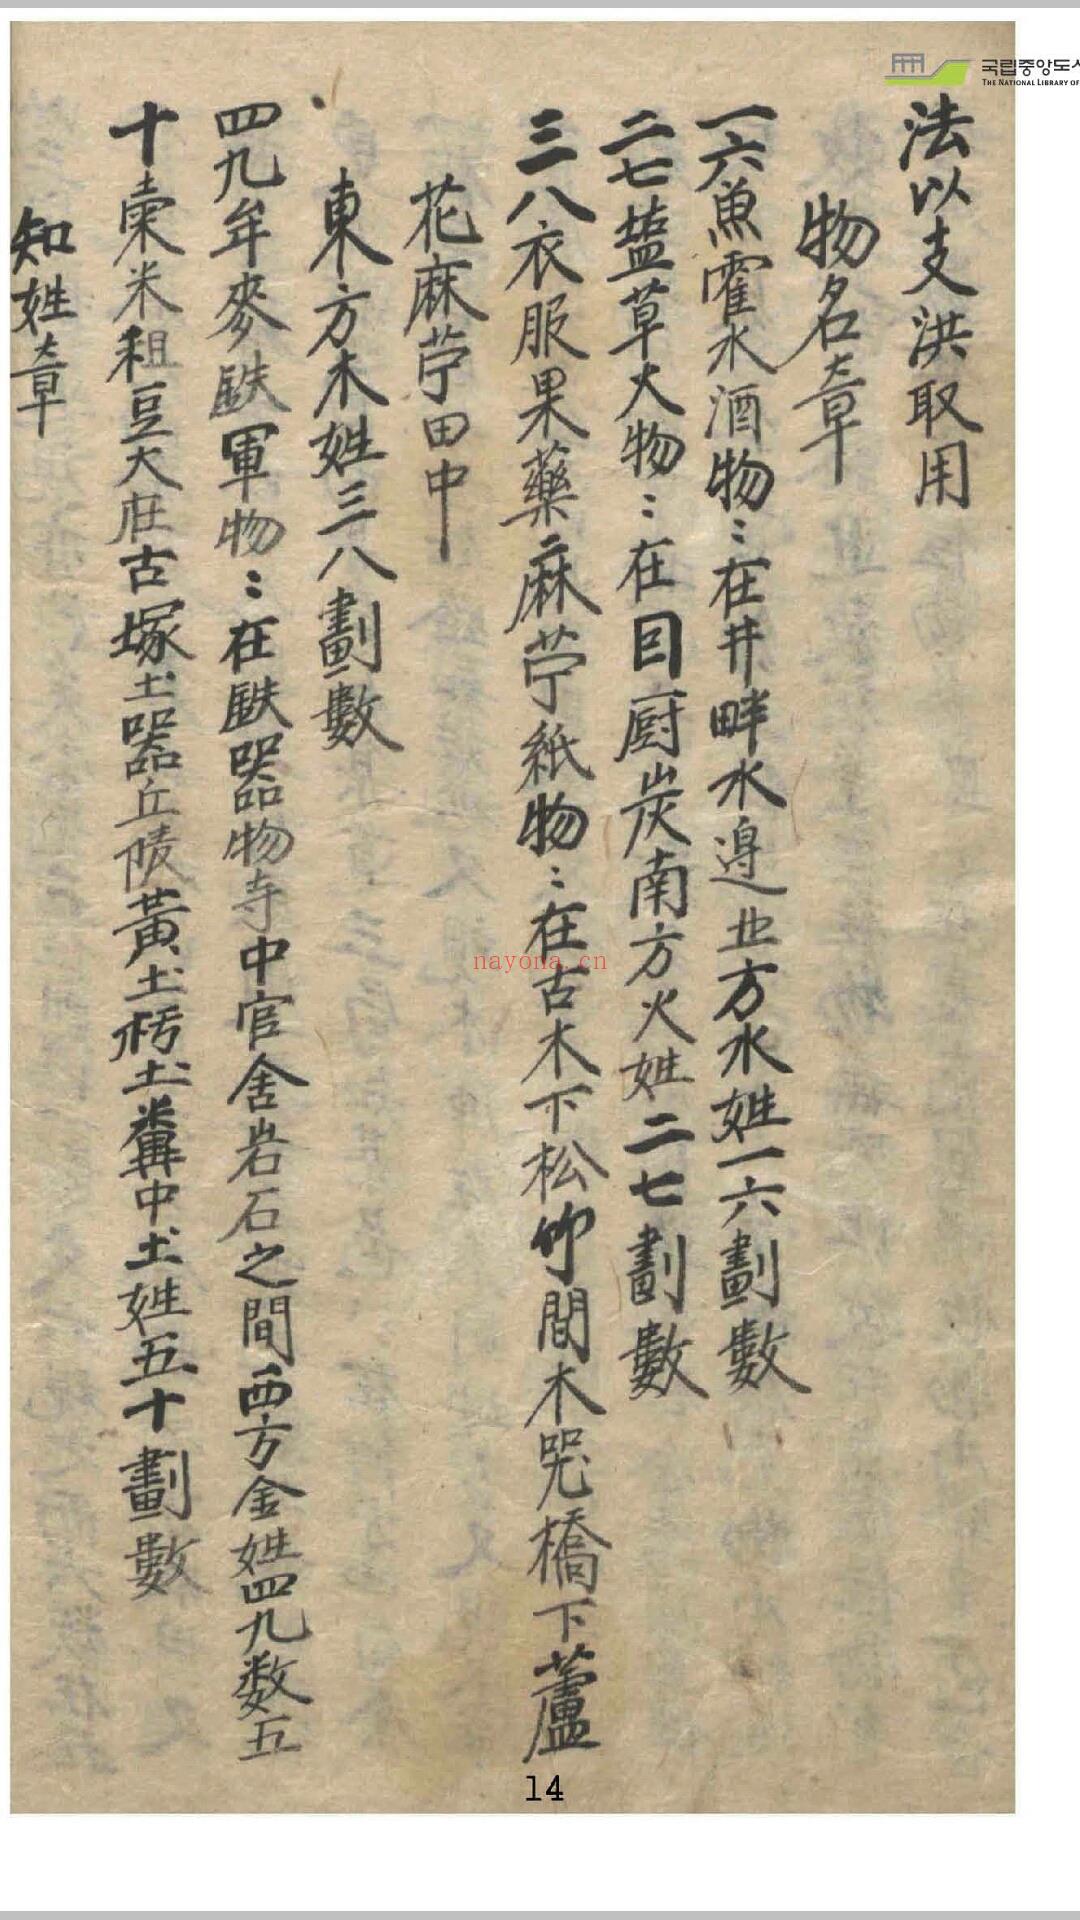 국립중앙도서
THE NATIONAL LIBRARY OF
法以支洪取用
物名章
一六魚霍水酒物〻在井畔水邊北方水姓一六劃數
二七塩草火物〻在囙厨炭南方火姓二七劃數
三八衣服果藥麻苧紙物〻在古木下松竹間木哭橋下蘆
花麻苧田中
東方木姓三八劃數
四九牟麥鉄軍物〻在鉄器物寺中官舍岩石之間西方金姓四九数五
十 米租豆大庄古塚土器丘陵黃土 土糞中土姓五十劃數
知姓章
nayona.cn
14